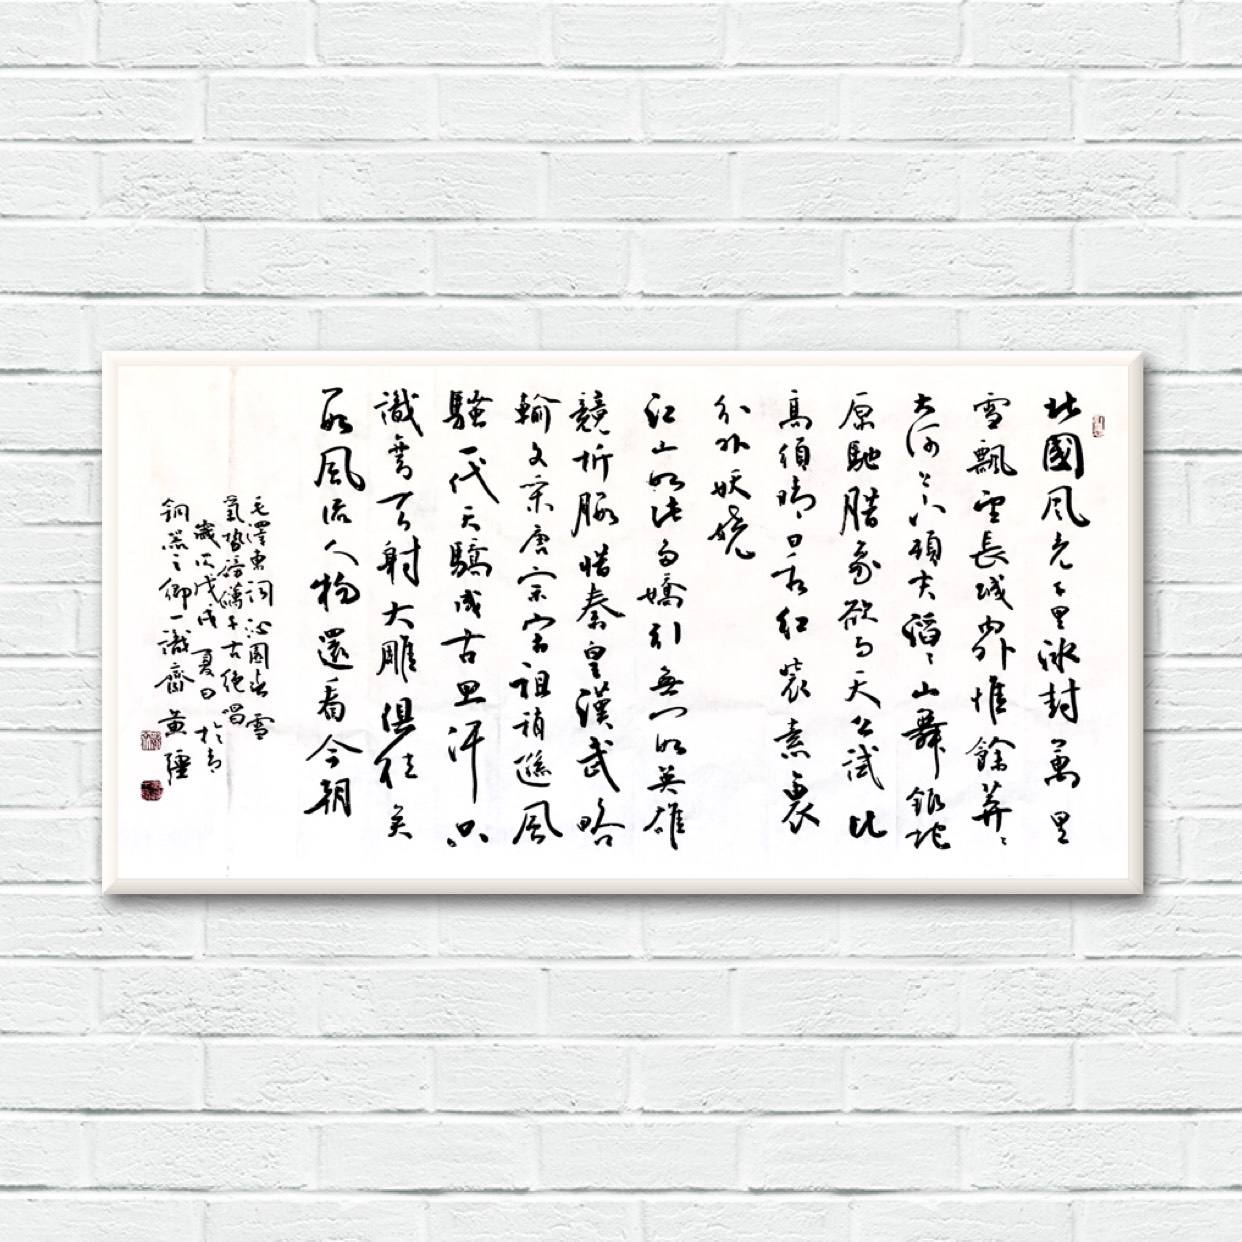 北國風光千里冰封萬里
雪飄望長城內外惟餘莽〻
大河上下頓失滔〻山舞銀蛇
原馳腊象欲与天公試比
高須晴日看紅裝素裹
分外妖嬈
江山如此多嬌引無數英雄
競折腰惜秦皇漢武略
輸文采唐宗宋祖稍遜風
騷一代天驕成吉思汗只
識彎弓射大雕俱往矣
數風流人物還看今朝
毛澤東詞沁園春雪
氣勢磅礴千古絕唱
歲次戊戌夏日於
銅之鄉一識齋黃疆